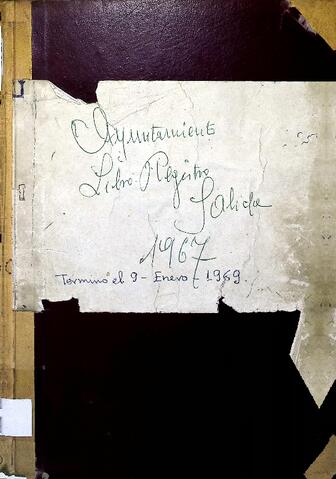 Ayuntamiento
Libro Registro
Salida
1967
Termino el 9 - Enero - 1969.